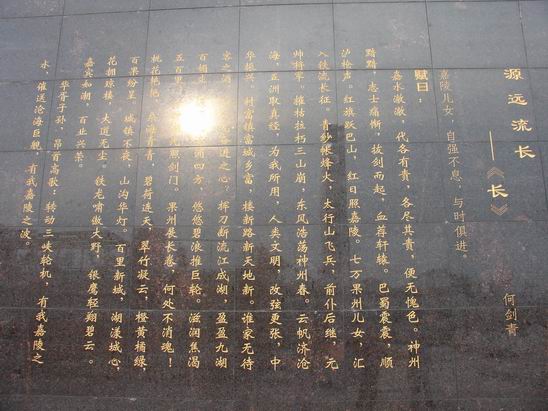 源远流长
——《长》
何剑青
嘉陵儿女，自强不息，与时俱进。
赋曰：
嘉水漱漱，代各有贵，各尽其责，便无愧色。神州
黯黯，志士痛惭，拔剑而起，血荐轩辕。巴蜀震震，顺
泸枪声。红旗跃巴山，红日照嘉陵。七万果州儿女，汇
入铁流长征。青纱燃烽火，太行山飞兵，前仆后继，元
帅将军。摧枯拉朽三山崩，东风浩荡神州春。云帆济沧
海，五洲取真经，为我所用，人类文明，改弦更张，中
华振兴。村富镇富城乡富，楼新路新天地新。谁家无待
客之酒，进之心。挥刀断流江成湖，盈盈九湖
百 四方，悠悠碧浪推巨轮。滋润焦渴
五百 照剑门。果州展长卷，何处不消魂！
桃花 艳，桑海青青，碧荷连天，翠竹凝云，橙黄橘绿，
百果纷呈。城镇不夜，山沟华灯。百里新城，湖漾城心，
花拥琼楼，大道无尘。铁龙啸傲大野，银鹰轻翔碧云。
嘉宾如潮，百业兴荣。
华胥子孙，昂首高歌：转动三峡轮机，有我嘉陵之
水，催送沧海巨舰，有我嘉陵之波。